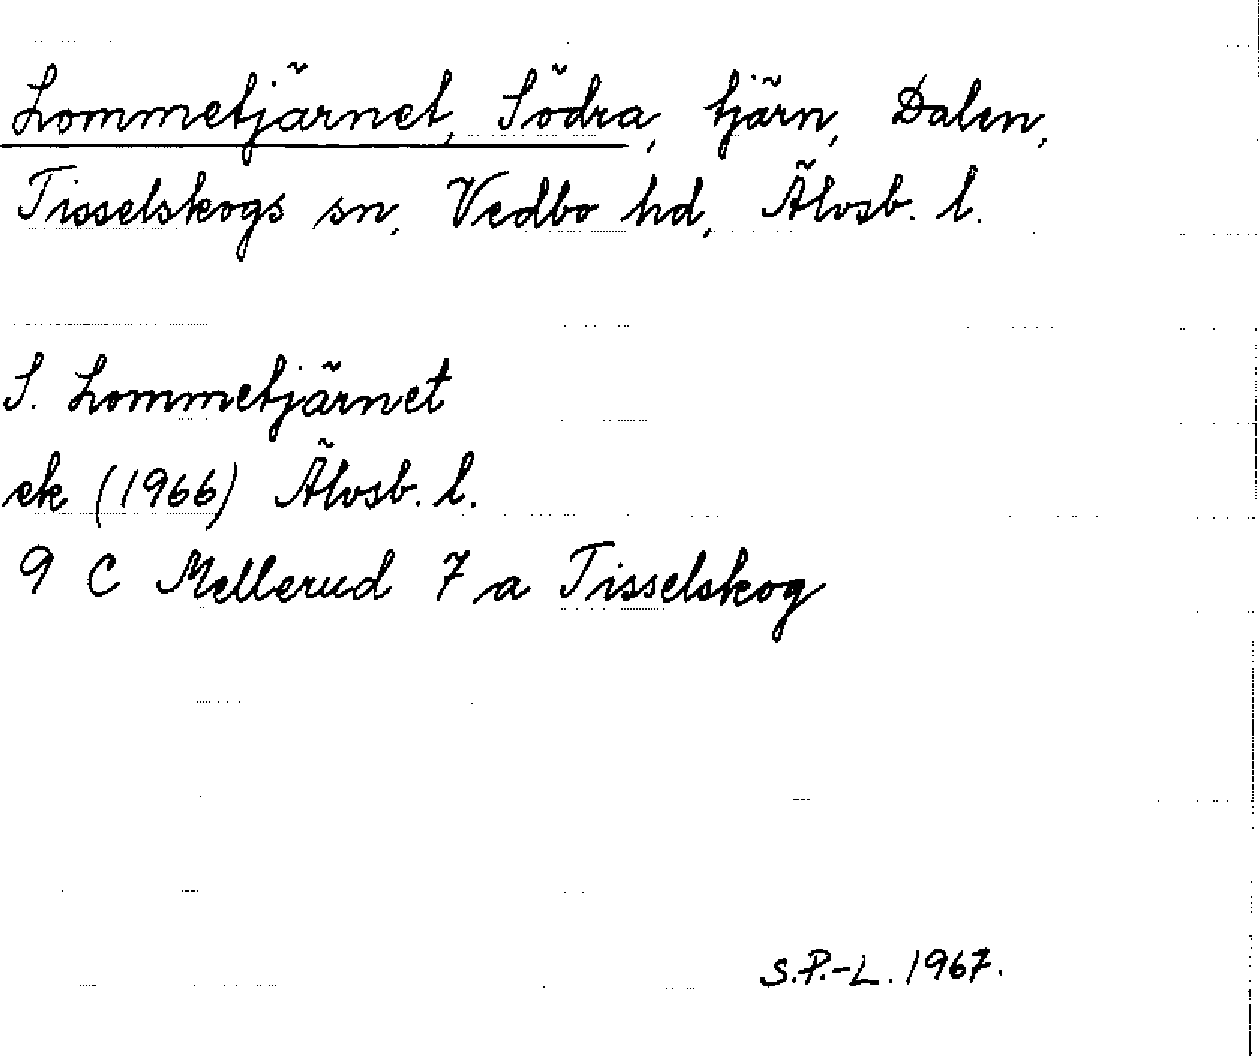 Lommetjärnet, Södra, tjärn, Dalen,
Tisselskogs sn, Vedbo hd, Älvsb. l.
S. Lommetjärnet
ek (1966) Älvsb. l.
9 C Mellerud 7 a Tisselskog
S.P.-L. 1967.